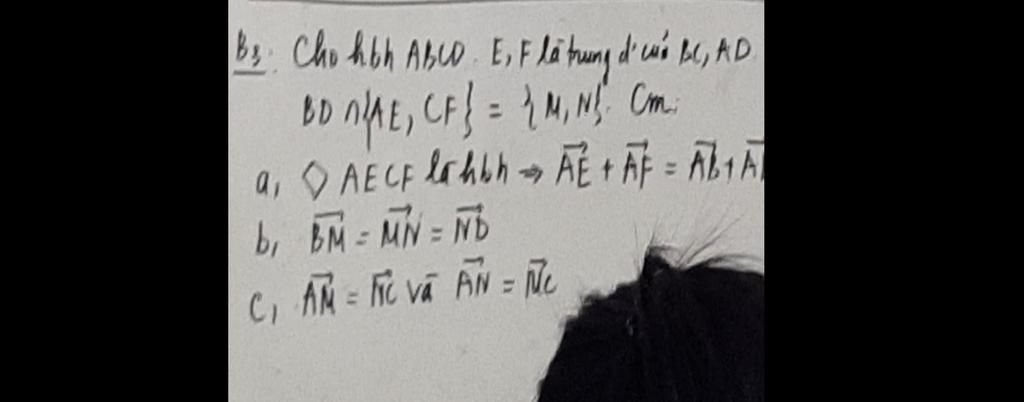 B3: Cho hbh ABCD. E, F là trung đ' của BC, AD
BD ∩ {AE, CF} = {M, N}. Cm:
a, ◇ AECF là hbh ⇒ \overrightarrow{AE} + \overrightarrow{AF} = \overrightarrow{AB} +
b, \overrightarrow{BM} = \overrightarrow{MN} = \overrightarrow{ND}
c, \overrightarrow{AM} = \overrightarrow{NC} và \overrightarrow{AN} = \overrightarrow{NC}